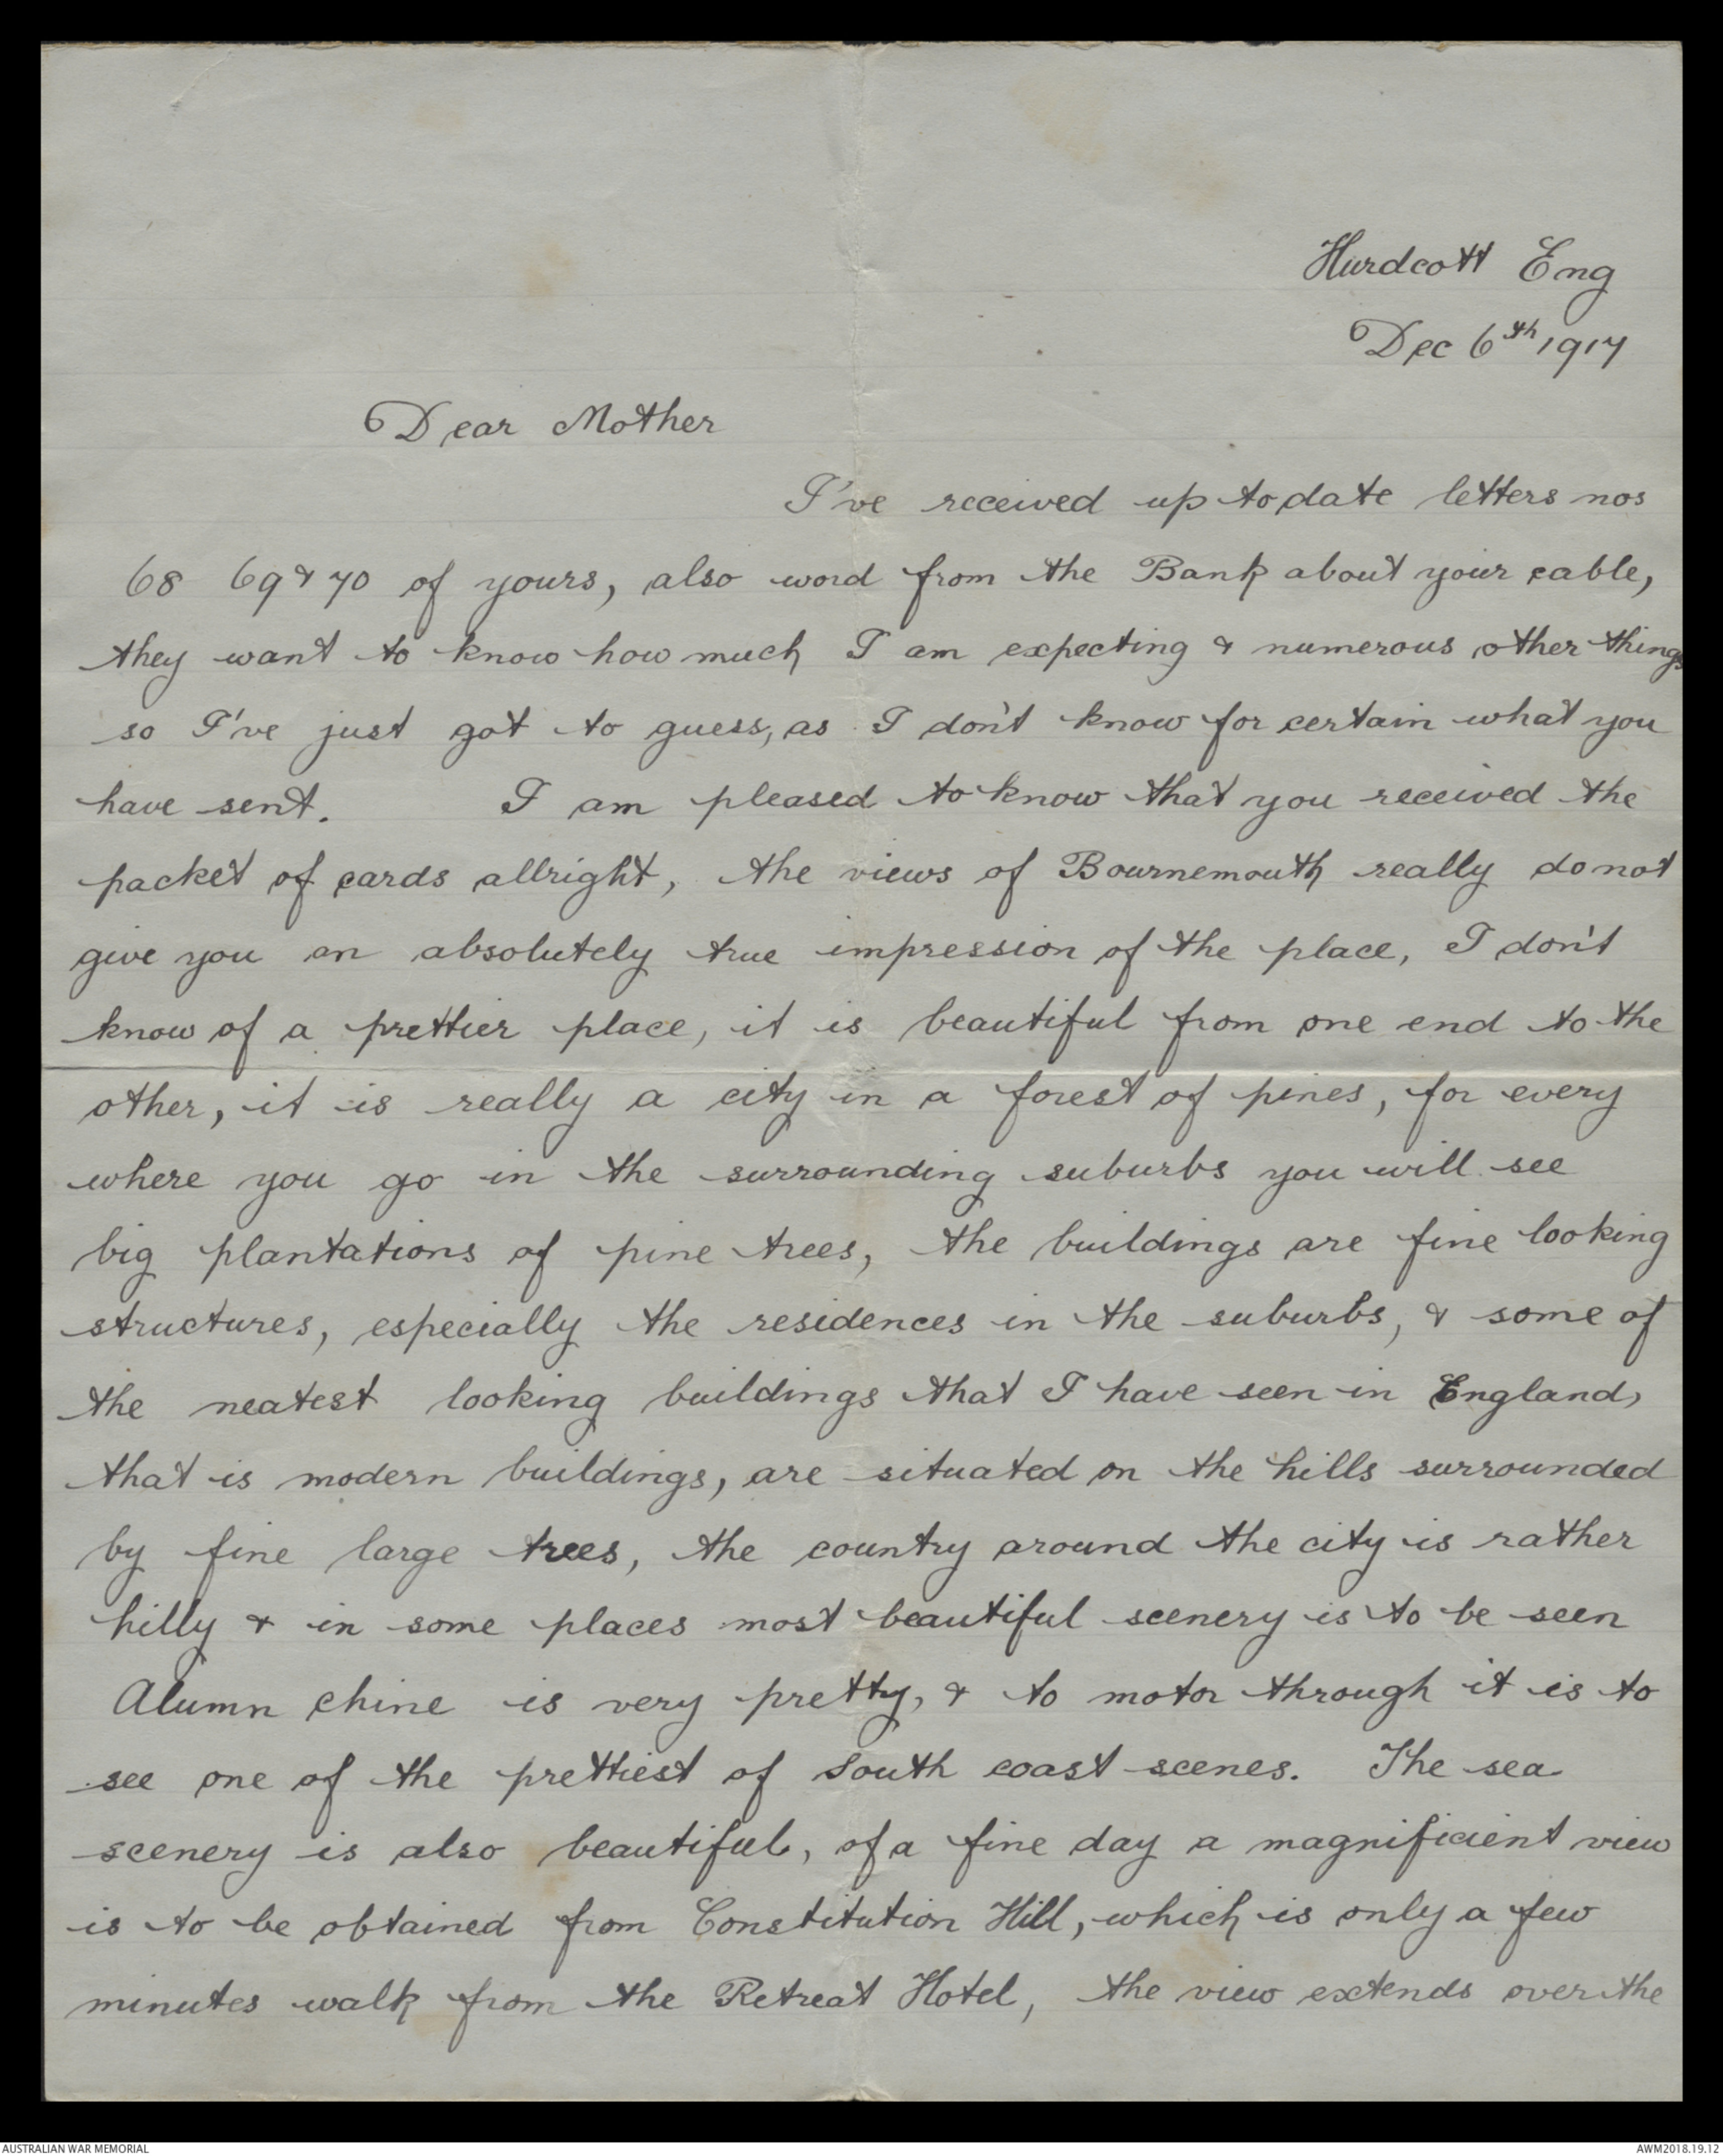 Hurdcott Eng
Dec 6th 1917
Dear Mother
I've received up to date letters nos
68 69 & 70 of yours, also word from the Bank about your cable,
they want to know how much I am expecting & numerous other things
so I've just got to guess, as I don't know for certain what you
have sent. I am pleased to know that you received the
packet of cards allright, the views of Bournemouth really do not
give you an absolutely true impression of the place, I don't
know of a prettier place, it is beautiful from one end to the
other, it is really a city in a forest of pines, for every
where you go in the surrounding suburbs you will see
big plantations of pine trees, the buildings are fine looking
structures, especially the residences in the suburbs, & some of
the neatest looking buildings that I have seen in England,
that is modern buildings, are situated on the hills surrounded
by fine large trees, the country around the city is rather
hilly & in some places most beautiful scenery is to be seen
Alumn chine is very pretty, & to motor through it is to
see one of the prettiest of South coast scenes. The sea
scenery is also beautiful, of a fine day a magnificient view
is to be obtained from Constitution Hill, which is only a few
minutes walk from the Retreat Hotel, the view extends over the
AUSTRALIAN WAR MEMORIAL
AWM2018.19.12